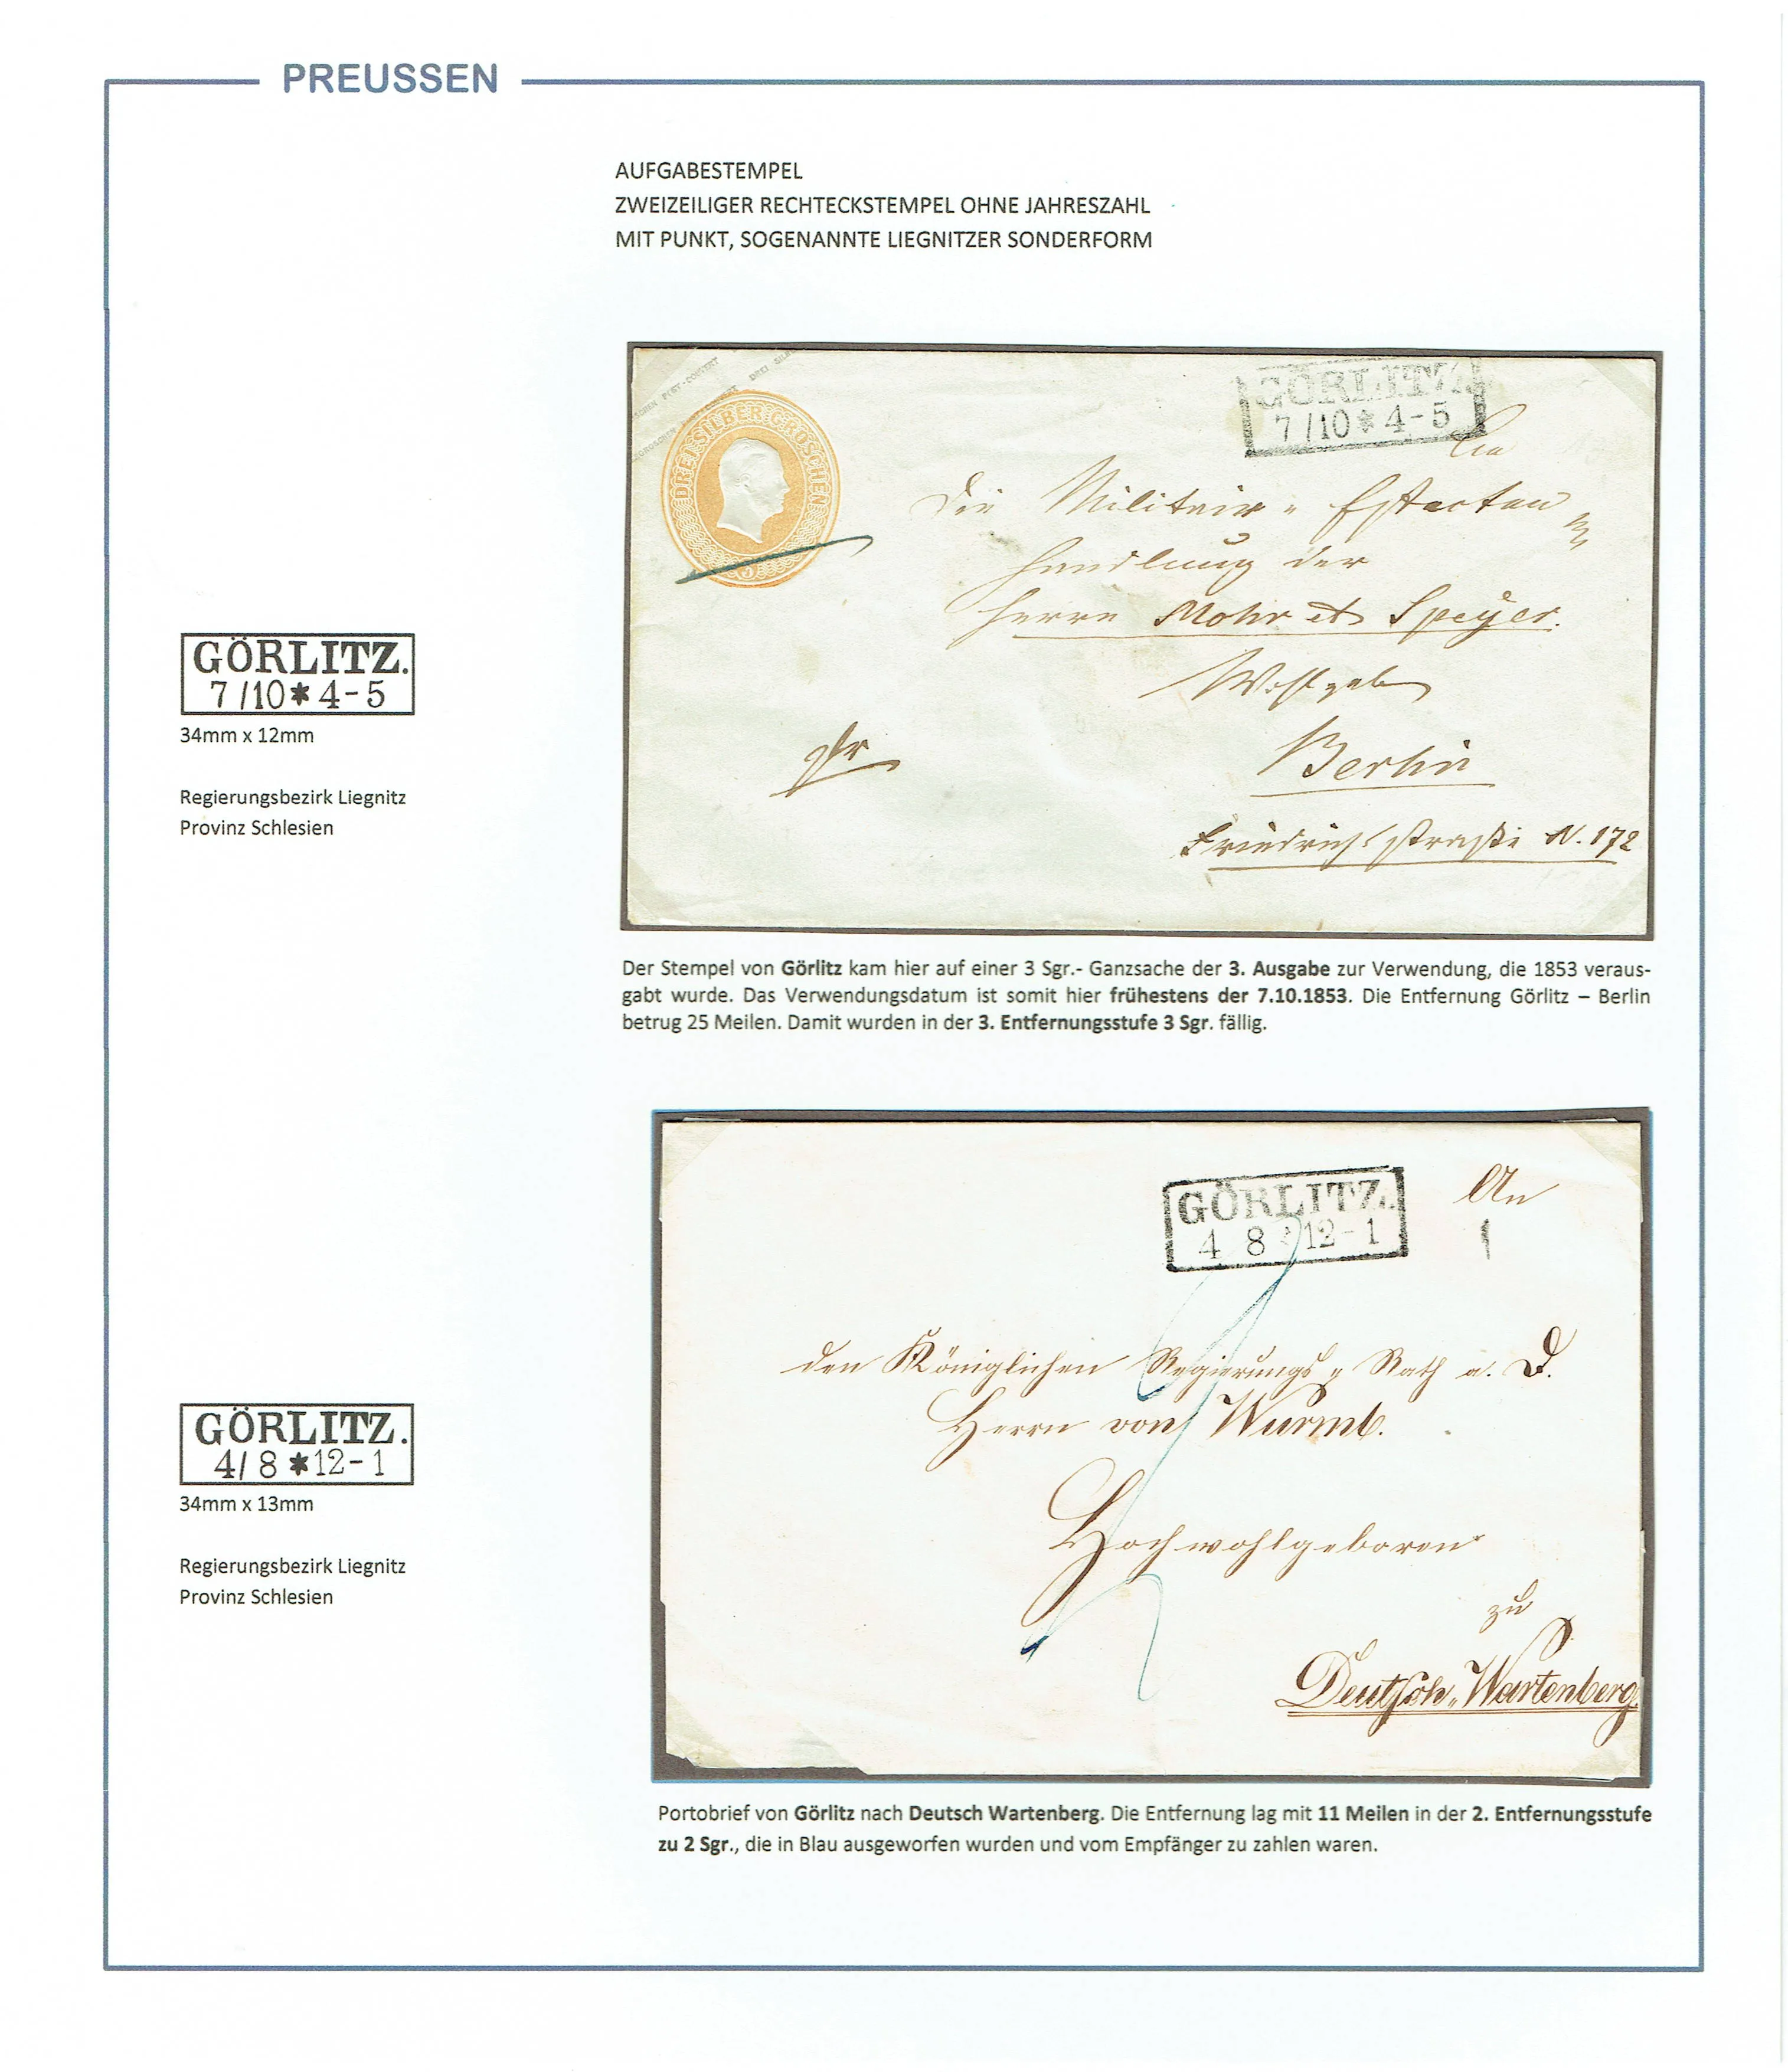 PREUSSEN
AUFGABESTEMPEL
ZWEIZEILIGER RECHTECKSTEMPEL OHNE JAHRESZAHL
MIT PUNKT, SOGENANNTE LIEGNITZER SONDERFORM
DREI SILBER GROSCHEN
3
GÖRLITZ.
7/10*4-5
An
die Militair-Effecten
Handlung der
Herrn Mohr et Speyer.
Berlin
Friedrichsstraße N. 172
GÖRLITZ.
7/10*4-5
34mm x 12mm
Regierungsbezirk Liegnitz
Provinz Schlesien
Der Stempel von Görlitz kam hier auf einer 3 Sgr.- Ganzsache der 3. Ausgabe zur Verwendung, die 1853 veraus-
gabt wurde. Das Verwendungsdatum ist somit hier frühestens der 7.10.1853. Die Entfernung Görlitz – Berlin
betrug 25 Meilen. Damit wurden in der 3. Entfernungsstufe 3 Sgr. fällig.
GÖRLITZ.
4 8 * 12-1
An
den Königlichen Regierungs-Rath a. D.
Herrn von Wurmb.
Hochwohlgeboren
zu
Deutsch-Wartenberg.
GÖRLITZ.
4/8*12-1
34mm x 13mm
Regierungsbezirk Liegnitz
Provinz Schlesien
Portobrief von Görlitz nach Deutsch Wartenberg. Die Entfernung lag mit 11 Meilen in der 2. Entfernungsstufe
zu 2 Sgr., die in Blau ausgeworfen wurden und vom Empfänger zu zahlen waren.